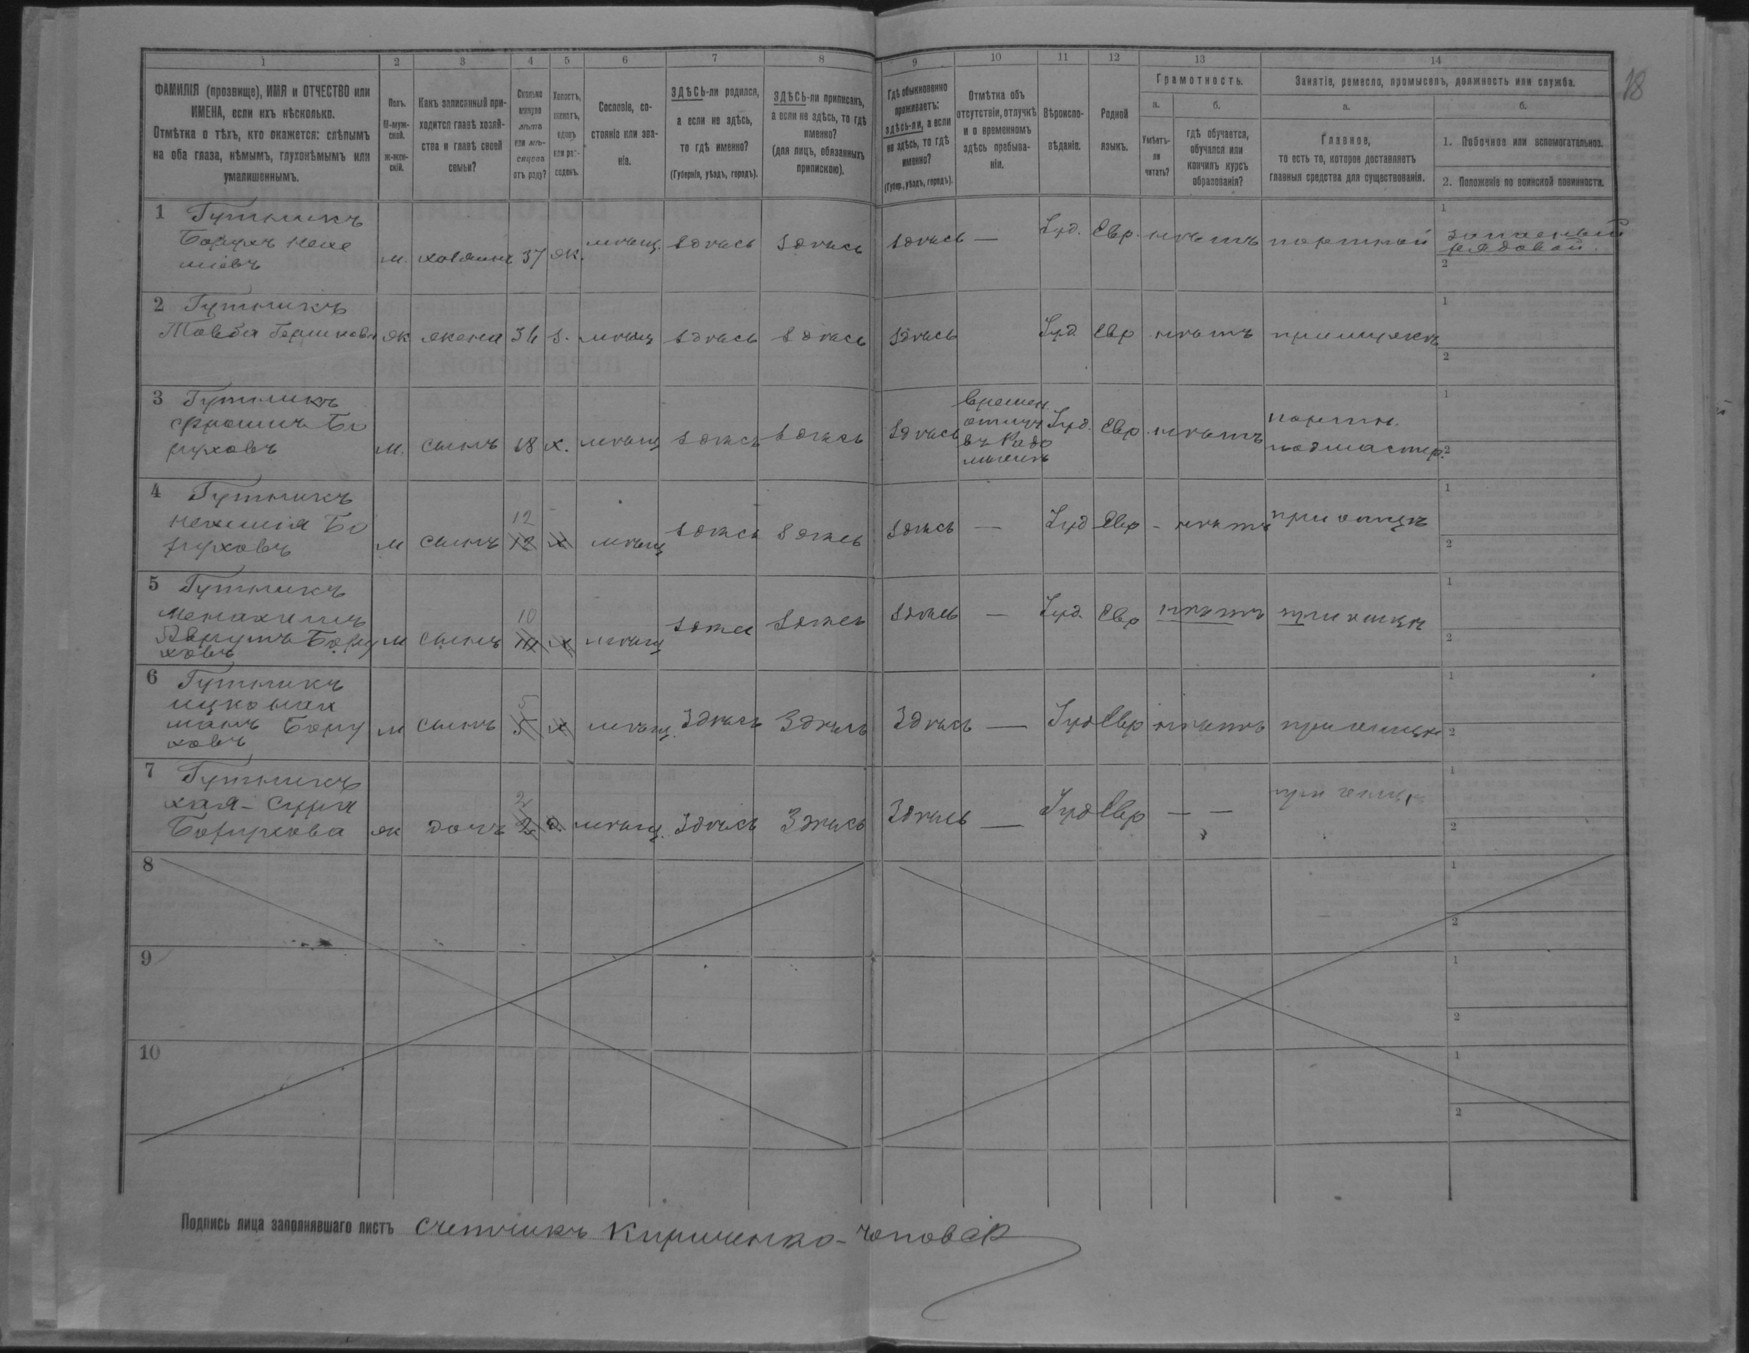 18
1 2 3 4 5 6 7 8 9 10 11 12 13 14
ФАМИЛІЯ (прозвище), ИМЯ и ОТЧЕСТВО или
ИМЕНА, если ихъ нѣсколько.
Отмѣтка о тѣхъ, кто окажется: слѣпымъ
на оба глаза, нѣмымъ, глухонѣмымъ или
умалишеннымъ.
Полъ.
М-муж-
ской.
Ж-жен-
скій.
Какъ записанный при-
ходится главѣ хозяй-
ства и главѣ своей
семьи?
Сколько
минуло
лѣтъ
или мѣ-
сяцевъ
отъ роду?
Холостъ,
женатъ,
вдовъ
или раз-
веденъ.
Сословіе, со-
стояніе или зва-
ніе.
ЗДѢСЬ-ли родился,
а если не здѣсь,
то гдѣ именно?
(Губернія, уѣздъ, городъ).
ЗДѢСЬ-ли приписанъ,
а если не здѣсь, то гдѣ
именно?
(для лицъ, обязанныхъ
припискою).
Гдѣ обыкновенно
проживаетъ:
здѣсь-ли, а если
не здѣсь, то гдѣ
именно?
(Губер., уѣздъ, городъ).
Отмѣтка объ
отсутствіи, отлучкѣ
и о временномъ
здѣсь пребыва-
ніи.
Вѣроиспо-
вѣданіе.
Родной
языкъ.
Грамотность.
а.
Умѣетъ-
ли
читать?
б.
гдѣ обучается,
обучался или
кончилъ курсъ
образованія?
Занятіе, ремесло, промыселъ, должность или служба.
а.
Главное,
то есть то, которое доставляетъ
главныя средства для существованія.
б.
1. Побочное или вспомогательное.
2. Положеніе по воинской повинности.
1 Гутникъ
Борухъ Нехе
міевъ
м. хозяинъ 37 ж. мѣщ. здѣсь здѣсь здѣсь — Іуд. Евр. нѣтъ портной
1 запасный
рядовой.
2
2 Гутникъ
Товба Гершковна
ж жена 36 з. мѣщ здѣсь здѣсь здѣсь Іуд Евр нѣтъ при мужѣ
1
2
3 Гутникъ
Фроимъ Бо
руховъ
м. сынъ 18 х. мѣщ здѣсь здѣсь здѣсь
времен
отлуч
въ Радо
мыслѣ
Іуд. Евр. нѣтъ
портн.
подмастер.
1
2
4 Гутникъ
Нехемія Бо
руховъ
м сынъ 12 12 х мѣщ здѣсь здѣсь здѣсь — Іуд Евр – нѣтъ при отцѣ
1
2
5 Гутникъ
Менахимъ
Бору
ховъ
м сынъ 10 10 х мѣщ здѣсь здѣсь здѣсь — Іуд Евр нѣтъ при отцѣ
1
2
6 Гутникъ
Бору
ховъ
м сынъ 5 5 х мѣщ. Здѣсь Здѣсь Здѣсь — Іуд Евр нѣтъ при отцѣ
1
2
7 Гутникъ
Хая-Сура
Борухова
ж дочь 2 2 мѣщ. Здѣсь Здѣсь Здѣсь — Іуд Евр — — при отцѣ
1
2
8
1
2
9
1
2
10
1
2
Подпись лица заполнявшаго листъ счетчикъ Кириченко-Чоповск